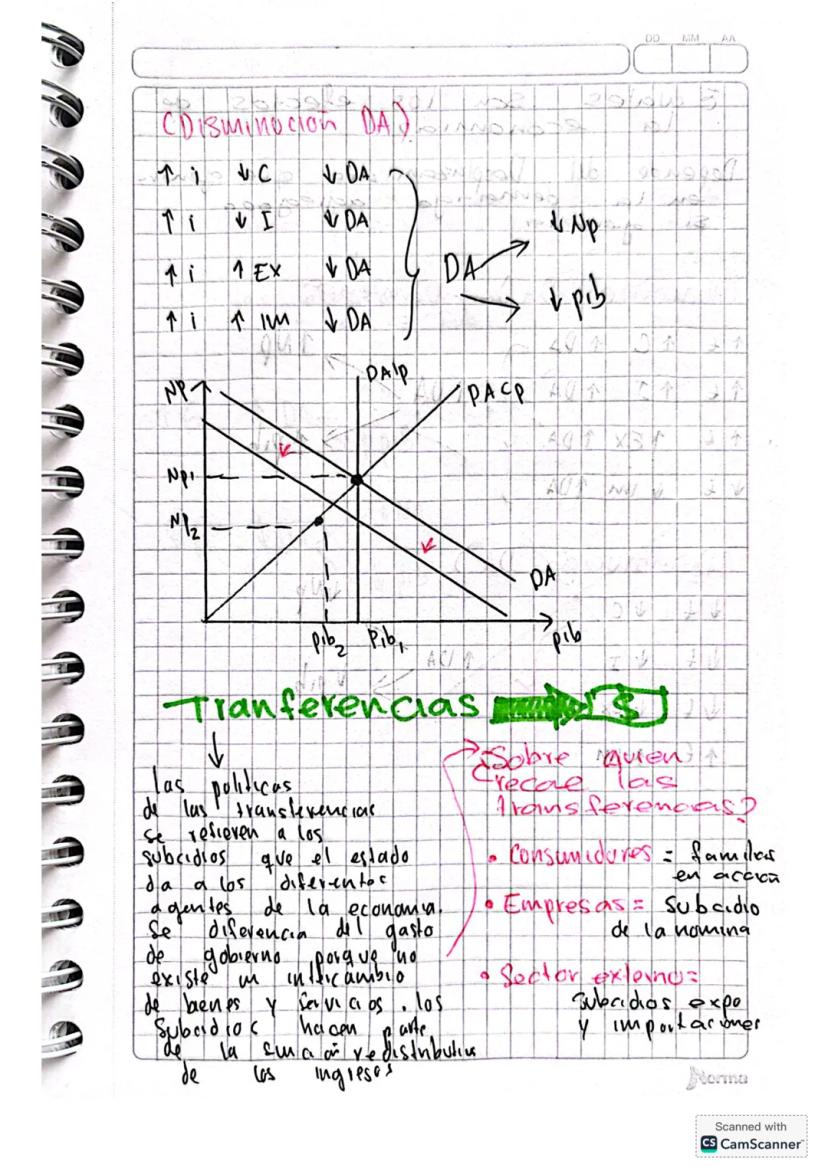 DD MM AA
(Disminución DA)
↑ i ↓ C ↓ DA
↑ i ↓ I ↓ DA
↑ i ↑ EX ↓ DA
↑ i ↑ IM ↓ DA
DA
↓ Np
↓ pib
Np
DAlp
DACp
Np1
Np2
DA
pib2 pib1
pib
Tranferencias $
las politicas
de las transferencias
se refieren a los
subsidios que el estado
da a los diferentes
agentes de la economia.
Se diferencia del gasto
de gobierno porque no
existe un intercambio
de bienes y servicios. los
Subsidios hacen parte
de la redistributiva
de los ingresos
¿Sobre quien
recae las
transferencias?
• Consumidores = familias
en acción
• Empresas = subcidio
de la nomina
• Sector externo =
subcidios expo
y importaciones
Norma
Scanned with
CS CamScanner